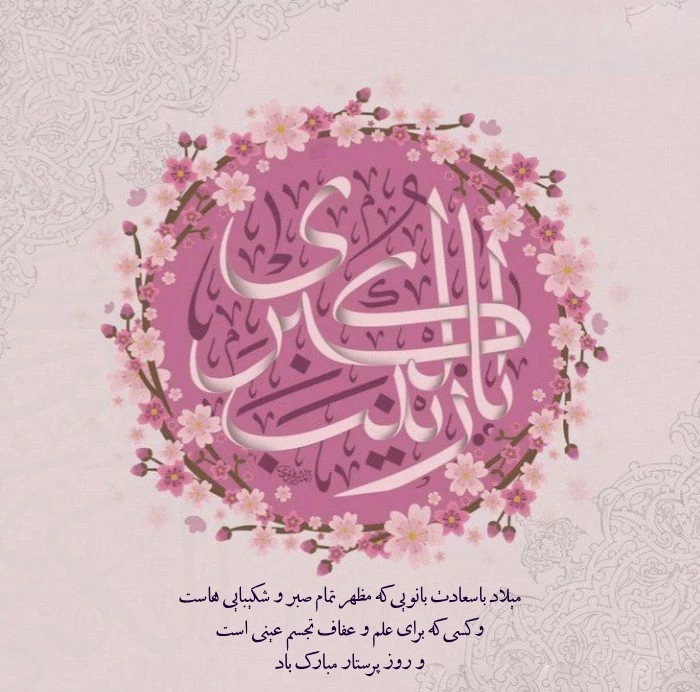 یا زینب الکبری
میلاد باسعادت بانویی که مظهر تمام صبر و شکیبایی هاست
و کسی که برای علم و عفاف تجسم عینی است
و روز پرستار مبارک باد